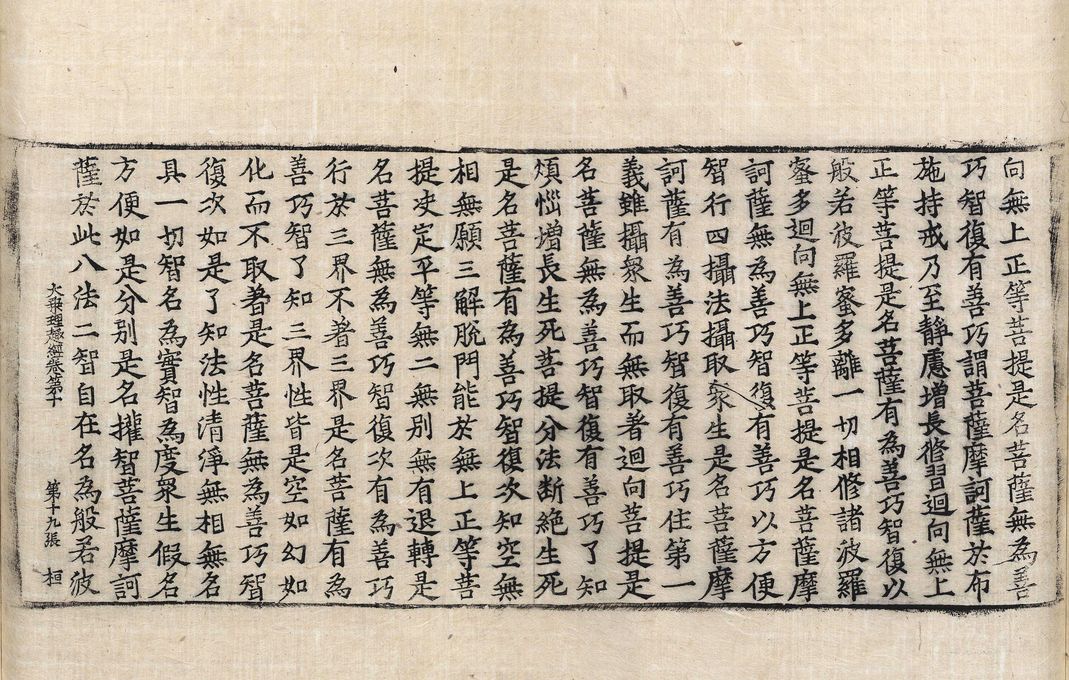 向無上正等菩提是名菩薩無為善
巧智復有善巧謂菩薩摩訶薩於布
施持戒乃至靜慮增長修習迴向無上
正等菩提是名菩薩有為善巧智復以
般若波羅蜜多離一切相修諸波羅
蜜多迴向無上正等菩提是名菩薩摩
訶薩無為善巧智復有善巧以方便
智行四攝法攝取眾生是名菩薩摩
訶薩有為善巧智復有善巧住第一
義雖攝眾生而無取著迴向菩提是
名菩薩無為善巧智復有善巧了知
煩惱增長生死菩提分法断絕生死
是名菩薩有為善巧智復次知空無
相無願三解脫門能於無上正等菩
提决定平等無二無別無有退轉是
名菩薩無為善巧智復次有為善巧
行於三界不著三界是名菩薩有為
善巧智了知三界性皆是空如幻如
化而不取著是名菩薩無為善巧智
復次如是了知法性清淨無相無名
具一切智名為實智為度眾生假名
方便如是分別是名權智菩薩摩訶
大乘理趣經卷第十 第十九張 桓
薩於此八法二智自在名為般若波